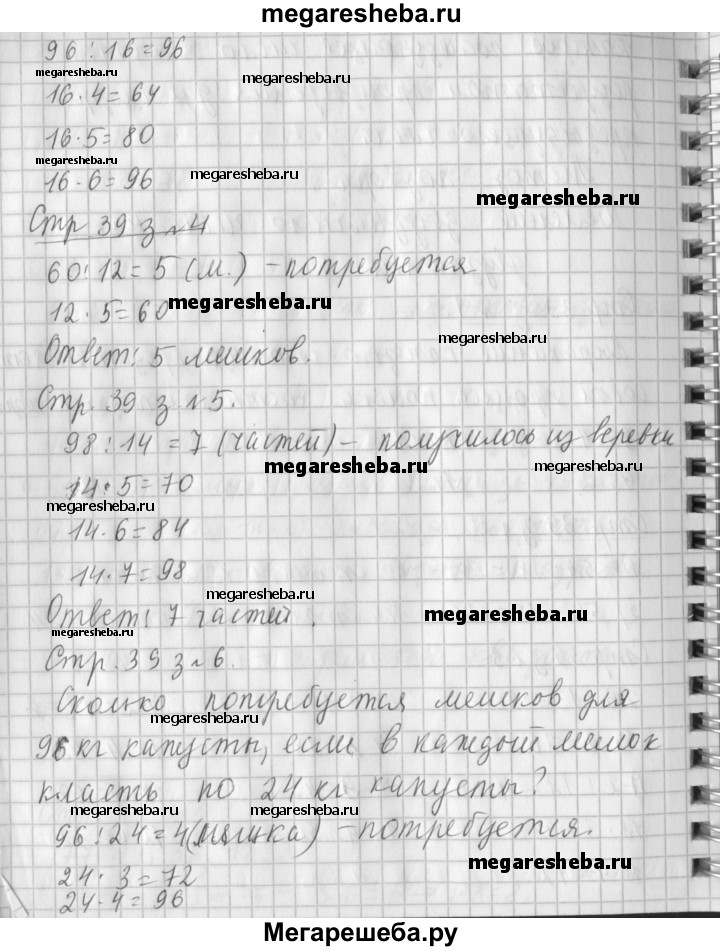 megaresheba.ru
96 : 16 = 96
megaresheba.ru megaresheba.ru
16 · 4 = 64
16 · 5 = 80
megaresheba.ru megaresheba.ru
16 · 6 = 96
megaresheba.ru
Стр 39 з № 4
60 : 12 = 5 (м.) – потребуется
12 · 5 = 60 megaresheba.ru
megaresheba.ru
Ответ: 5 мешков.
Стр. 39 з № 5.
98 : 14 = 7 (частей) – получилось из веревки
megaresheba.ru megaresheba.ru
14 · 5 = 70
megaresheba.ru
14 · 6 = 84
14 · 7 = 98
megaresheba.ru
Ответ: 7 частей. megaresheba.ru
megaresheba.ru
Стр. 39 з № 6.
Сколько потребуется мешков для
megaresheba.ru
96 кг капусты, если в каждый мешок
класть по 24 кг капусты?
megaresheba.ru megaresheba.ru
96 : 24 = 4 (мешка) – потребуется.
megaresheba.ru
24 · 3 = 72
24 · 4 = 96
Мегарешеба.ру